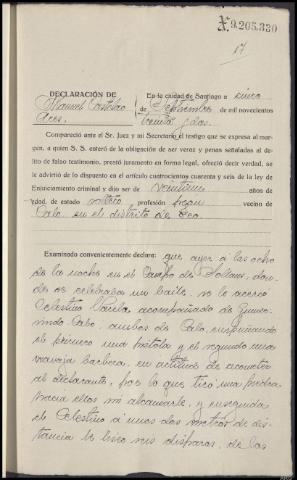 N.9.205.330
17
DECLARACIÓN DE
Manuel
Ares.
En la ciudad de Santiago a cinco
de Septiembre de mil novecientos
treinta y dos.
Compareció ante el Sr. Juez y mi Secretario el testigo que se expresa al mar-
gen, a quien S. S. enteró de la obligación de ser veraz y penas señaladas al de-
lito de falso testimonio, prestó juramento en forma legal, ofreció decir verdad, se
le advirtió de lo dispuesto en el artículo cuatrocientos cuarenta y seis de la ley de
Enjuiciamiento criminal y dijo ser de veintiun años de
edad, de estado soltero profesión vecino de
Calo en el distrito de Teo.
Examinado convenientemente declara: que ayer a las ocho
de la noche en el Campo de don-
de se celebraba un baile, se le acercó
Celestino acompañado de Gume-
sindo Cabo, ambos de Calo, empuñando
el primero una pistola y el segundo una
navaja barbera, en actitud de acometer
al declarante, por lo que tiró una piedra
hacia ellos sin alcanzarle, y enseguida
el Celestino a unos dos metros de dis-
tancia le hizo seis disparos, de los